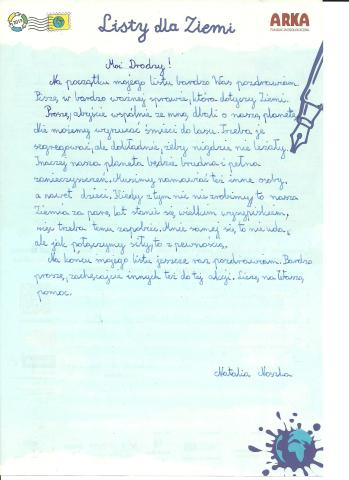 Listy dla Ziemi
ARKA
Moi Drodzy!
Na początku mojego listu bardzo Was pozdrawiam.
Piszę w bardzo ważnej sprawie, która dotyczy Ziemi.
Proszę, abyście wspólnie ze mną dbali o naszą planetę.
Nie możemy wyrzucać śmieci do lasu. Trzeba je
segregować, ale dokładnie, żeby nigdzie nie leżały.
Inaczej nasza planeta będzie brudna i pełna
zanieczyszczeń. Musimy namawiać też inne osoby,
a nawet dzieci. Kiedy z tym nic nie zrobimy to nasza
Ziemia za parę lat stanie się wielkim wysypiskiem,
więc trzeba temu zapobiec. Mnie samej się to nie uda,
ale jak połączymy siły, to z pewnością.
Na koniec mojego listu jeszcze raz pozdrawiam. Bardzo
proszę, zachęcajcie innych też do tej akcji. Liczę na Waszą
pomoc.
Natalia